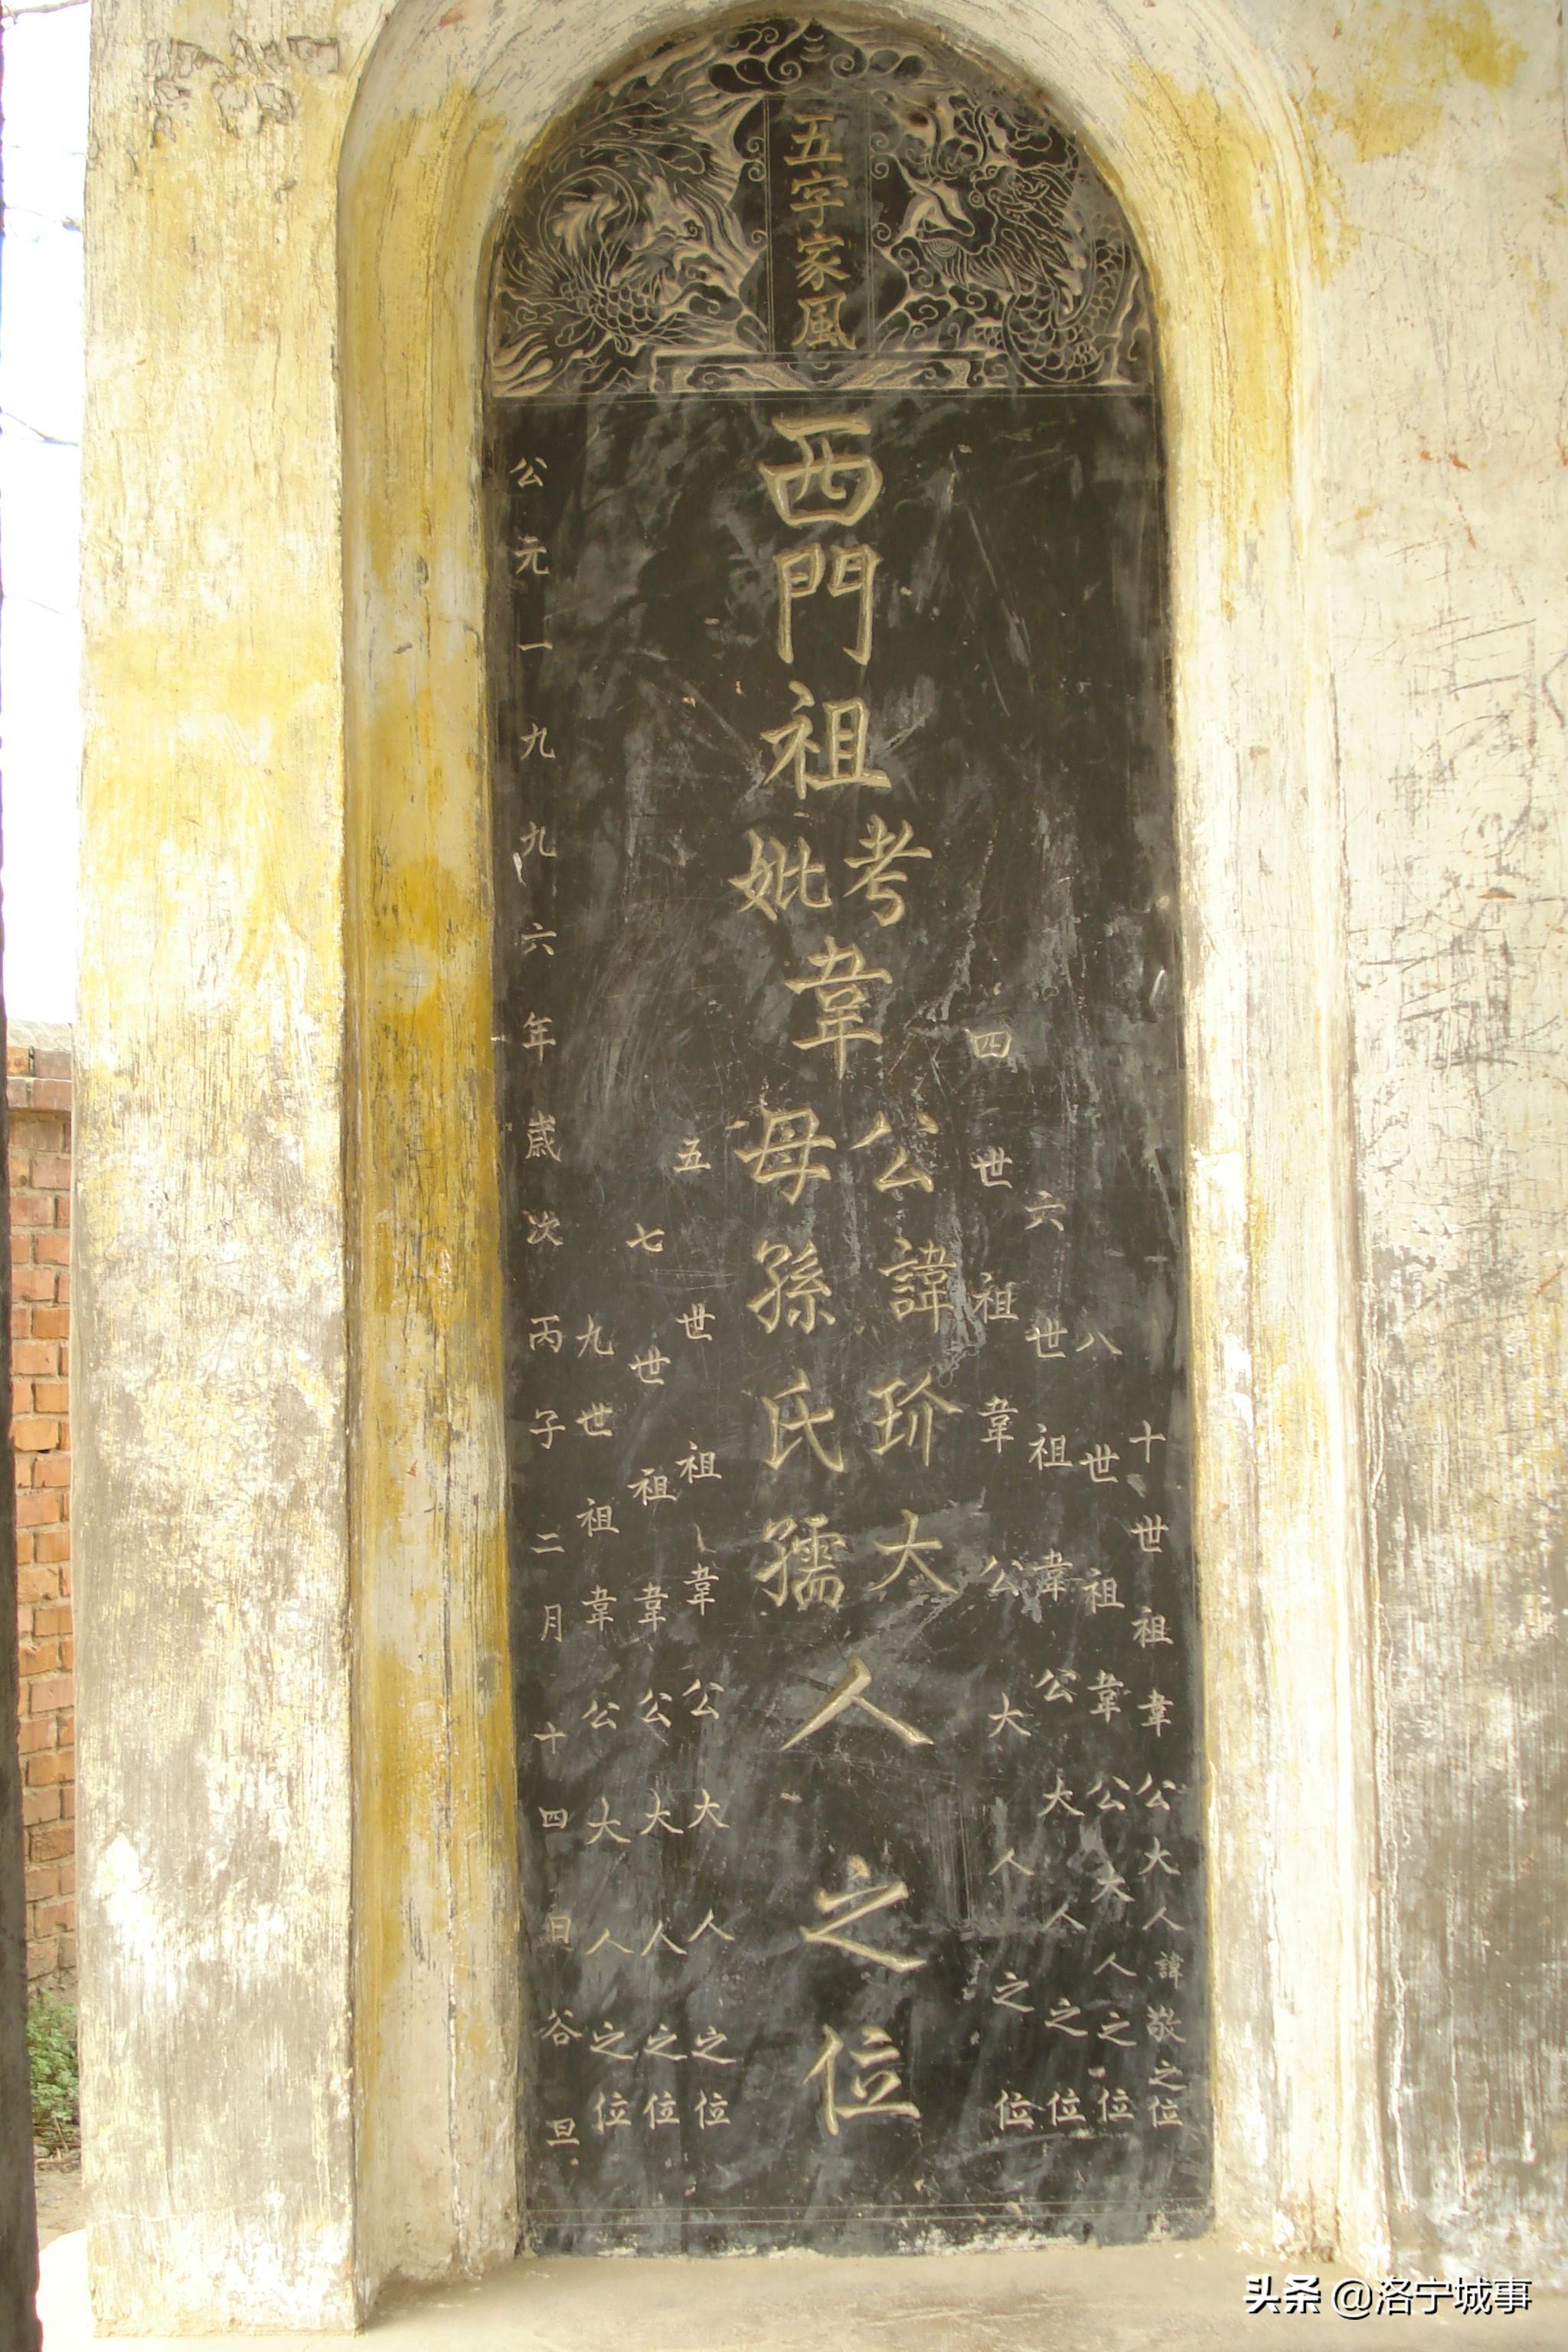 五字家風
十世祖韋公大人諱敬之位
八世祖韋公大人之位
六世祖韋公大人之位
四世祖韋公大人之位
西門祖
考
妣
韋
公諱玠大
母孫氏孺
人之位
五世祖韋公大人之位
七世祖韋公大人之位
九世祖韋公大人之位
公元一九九六年歲次丙子二月十四日谷旦
头条 @洛宁城事